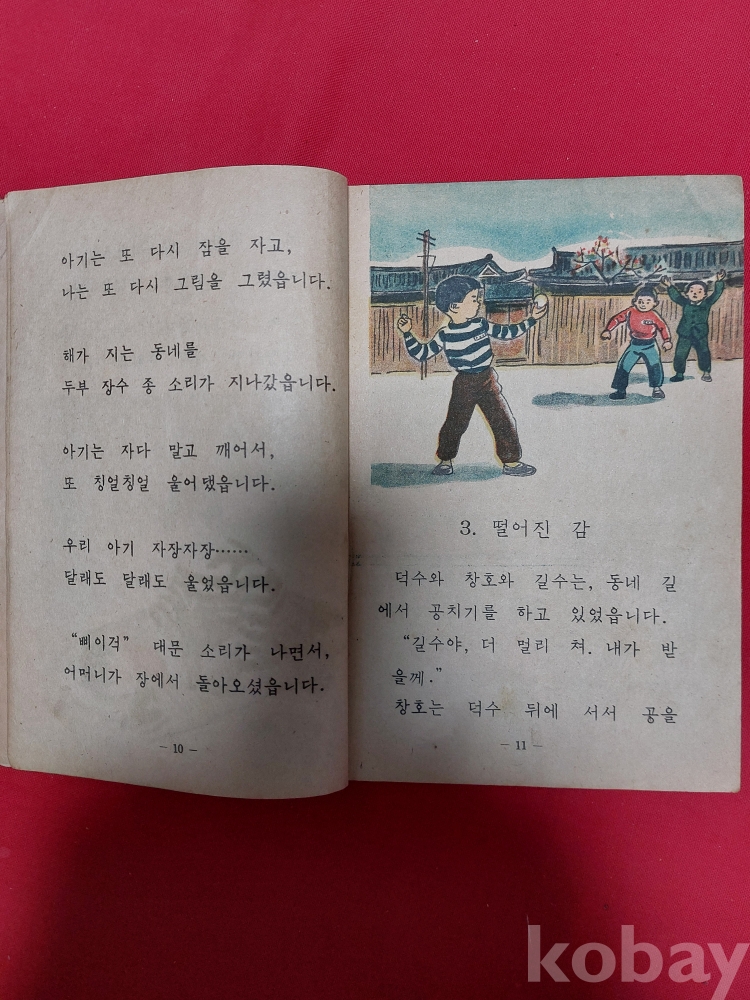 아기는 또 다시 잠을 자고,
나는 또 다시 그림을 그렸읍니다.
해가 지는 동네를
두부 장수 종 소리가 지나갔읍니다.
아기는 자다 말고 깨어서,
또 칭얼칭얼 울어댔읍니다.
우리 아기 자장자장……
달래도 달래도 울었읍니다.
“삐이걱” 대문 소리가 나면서,
어머니가 장에서 돌아오셨읍니다.
- 10 -
3. 떨어진 감
덕수와 창호와 길수는, 동네 길
에서 공치기를 하고 있었읍니다.
“길수야, 더 멀리 쳐. 내가 받
을께.”
창호는 덕수 뒤에 서서 공을
- 11 -
kobay